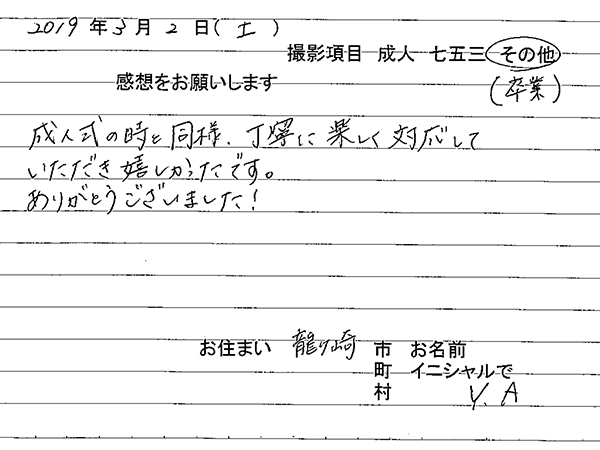 2019年3月2日(土)
撮影項目 成人 七五三 その他
感想をお願いします (卒業)
成人式の時と同様、丁寧に楽しく対応して
いただき嬉しかったです。
ありがとうございました!
お住まい 龍ヶ崎 市 お名前
町 イニシャルで
村 Y.A